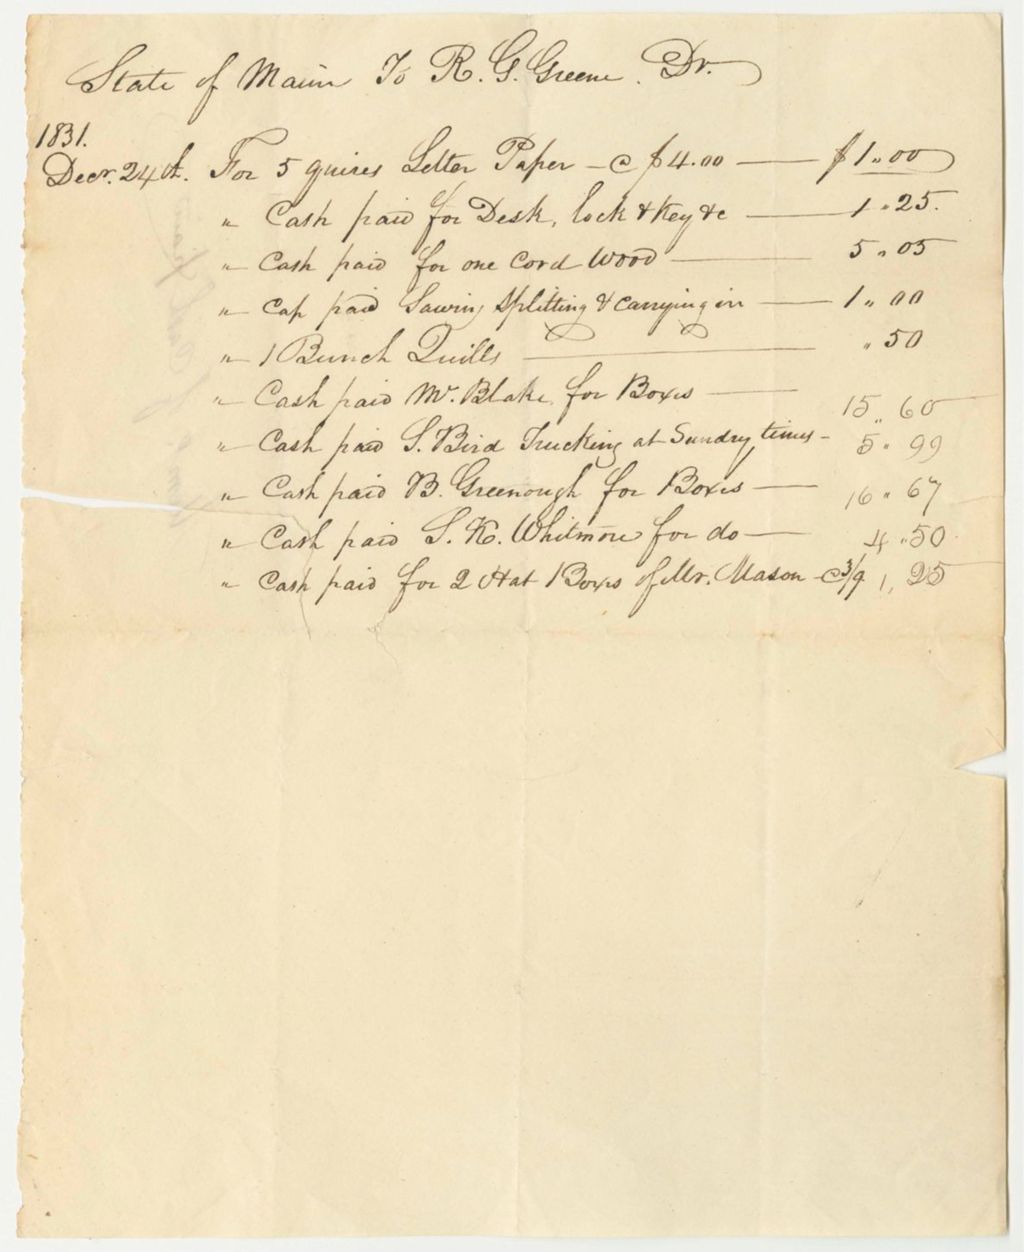 State of Maine To R. G. Greene. Dr.
1831.
Decr. 24th. For 5 quires Letter Paper - @ $4.00 — $1.00
" Cash paid for Desk, lock & Key &c — 1.25.
" Cash paid for one Cord Wood — 5.05
" Cash paid Sawing Splitting & Carrying in — 1.00
" 1 Bunch Quills — .50
" Cash paid Mr. Blake for Boxes — 15.60
" Cash paid S. Bird Trucking at Sundry times - 5.99
" Cash paid B. Greenough for Boxes — 16.67
" Cash paid S. K. Whitmore for do — 4.50
" Cash paid for 2 Hat Boxes of Mr. Mason - @ 3/9 1,25